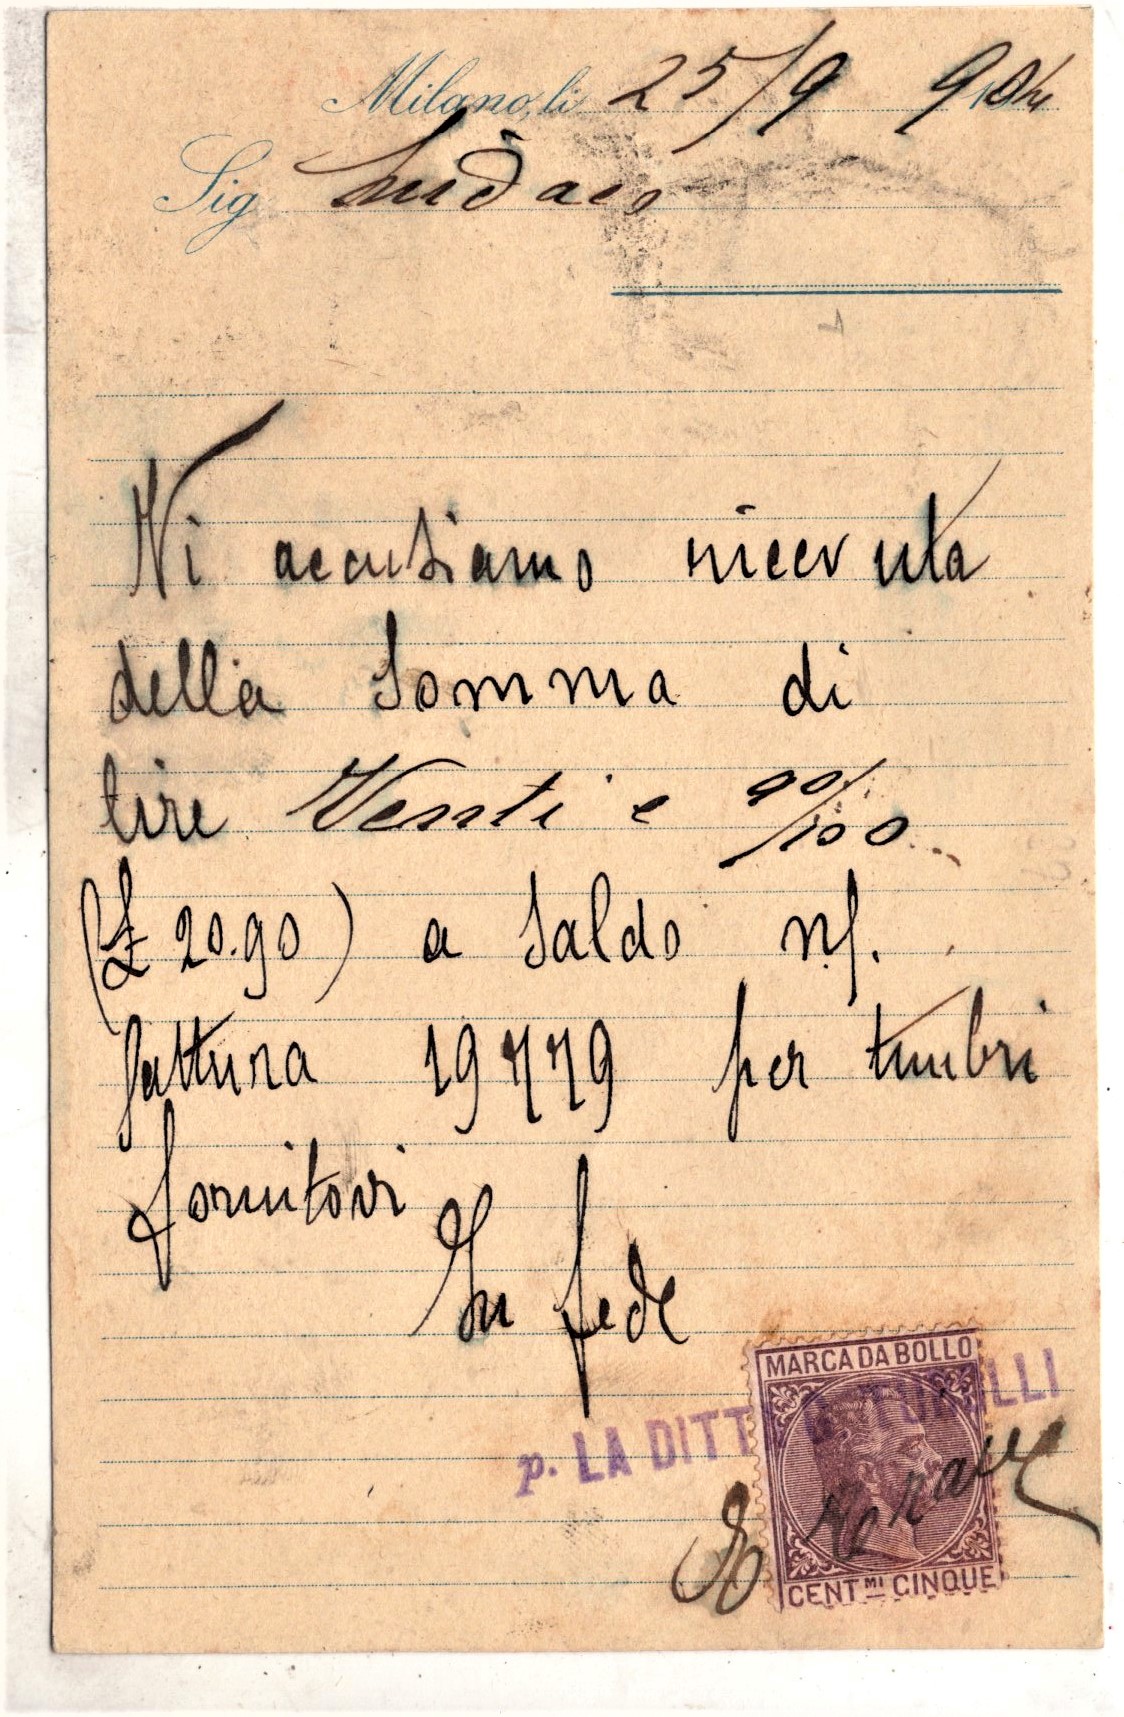 Milano, li 25/9 904
Sig Sindaco
Vi accusiamo ricevuta
della somma di
lire Venti e 90/100
(£ 20.90) a saldo n/.
fattura 19779 per timbri
fornitovi
In fede
MARCA DA BOLLO
p. LA DITT
CENT.MI CINQUE